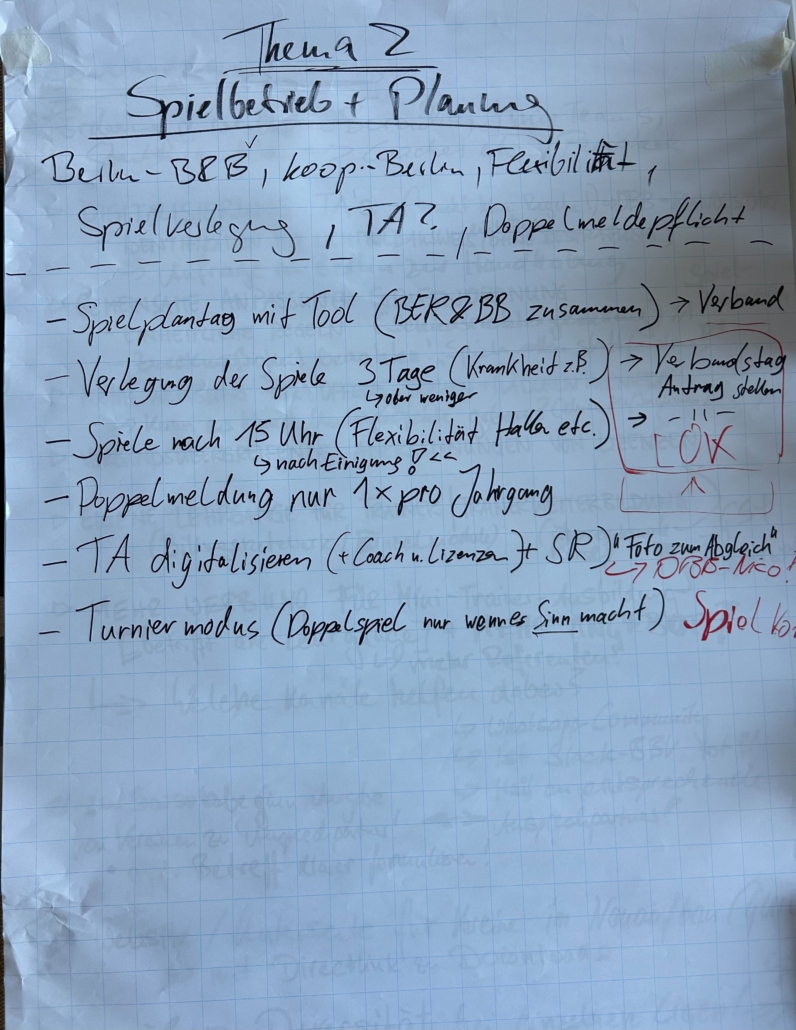 Thema 2
Spielbetrieb + Planung
Berlin-BBB, koop.-Berlin, Flexibilität,
Spielverlegung, TA?, Doppelmeldepflicht
- Spielplantag mit Tool (BER&BB zusammen) → Verband
- Verlegung der Spiele 3 Tage (Krankheit z.B.) → Verbandstag
↳ oder weniger
Antrag stellen
- Spiele nach 15 Uhr (Flexibilität Hallen etc.) → - " -
↳ nach Einigung! <<
OK
- Doppelmeldung nur 1x pro Jahrgang
- TA digitalisieren (+ Coach u. Lizenzen) + SR) "Foto zum Abgleich"
- Turniermodus (Doppelspiel nur wenn es Sinn macht) Spiel